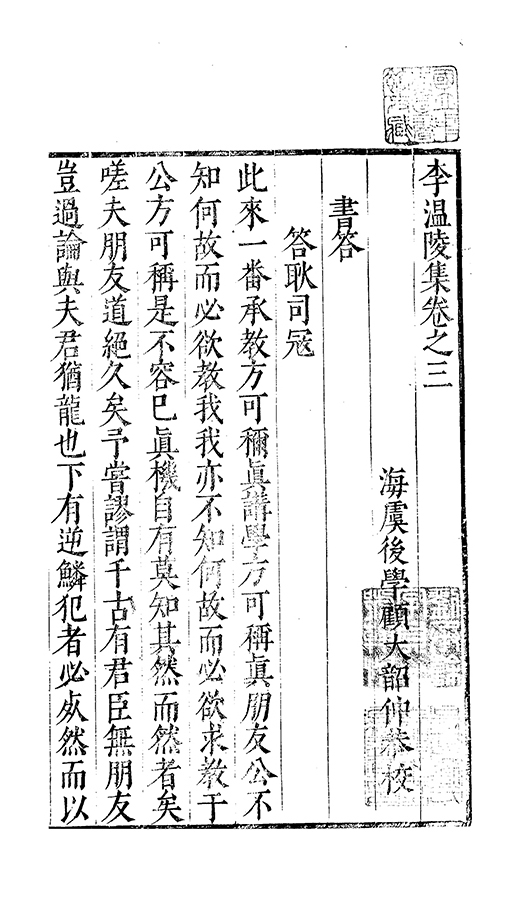 李温陵集卷之三
海虞後學顧大韶仲恭校
書答
答耿司冦
此來一番承教方可稱眞講學方可稱眞朋友公不
知何故而必欲教我我亦不知何故而必欲求教于
公方可稱是不容已眞機自有莫知其然而然者矣
嗟夫朋友道絕久矣予嘗謬謂千古有君臣無朋友
豈過論與夫君猶龍也下有逆鱗犯者必处然而以